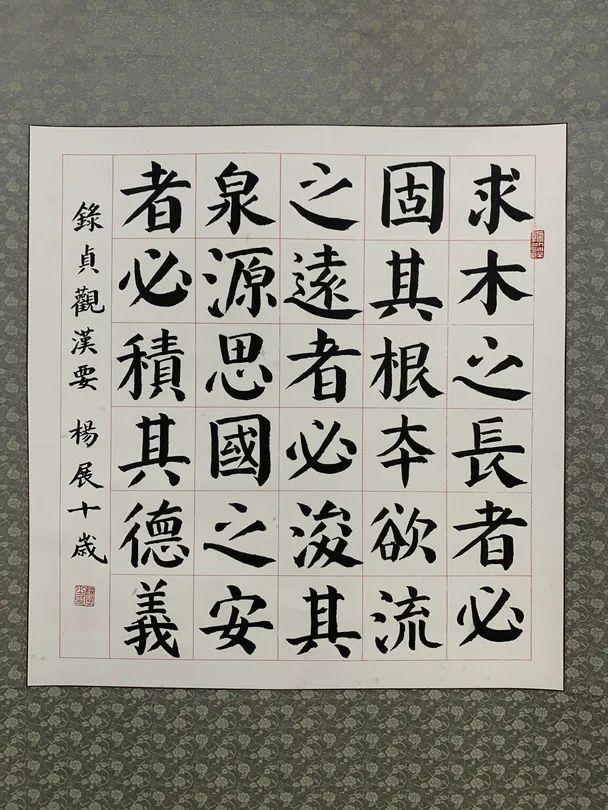 求木之長者必
固其根夲欲流
之遠者必浚其
泉源思國之安
者必積其德義
錄貞觀漢要 楊展十歲